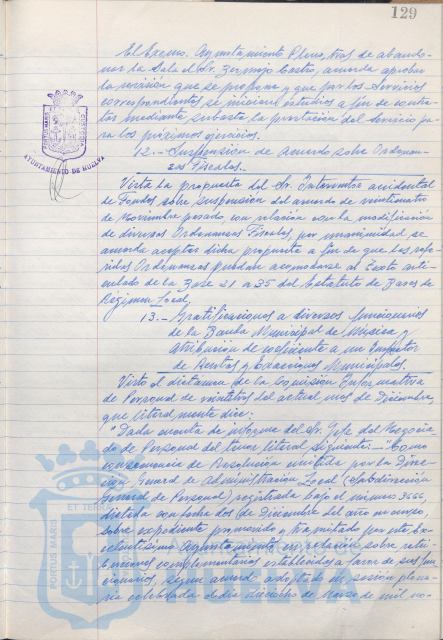 129
El Excmo. Ayuntamiento Pleno, tras de abando-
nar la Sala el Sr. Bermejo Castro, acuerda aprobar
la revisión que se propone y que por los Servicios
correspondientes se inicien estudios a fin de contra-
tar mediante subasta la prestación del servicio pa-
ra los próximos ejercicios.
12.- Suspensión de Acuerdo sobre Ordenan-
zas Fiscales.
Vista la propuesta del Sr. Interventor accidental
de Fondos sobre suspensión del acuerdo de veinticuatro
de Noviembre pasado, con relación con la modificación
de diversas Ordenanzas Fiscales, por unanimidad se
acuerda aceptar dicha propuesta a fin de que las refe-
ridas Ordenanzas puedan acomodarse al Texto arti-
culado de la Base 21 a 35 del Estatuto de Bases de
Régimen Local.
13.- Gratificaciones a diversos funcionarios
de la Banda Municipal de Música y
atribución de coeficiente a un Inspector
de Rentas y Exacciones Municipales.
Visto el dictamen de la Comisión Informativa
de Personal de veintitrés del actual mes de Diciembre,
que literalmente dice:
"Dada cuenta de informe del Sr. Jefe del Negocia-
do de Personal del tenor literal siguiente: -"Como
consecuencia de Resolución emitida por la Direc-
ción General de Administración Local (Subdirección
General de Personal) registrada bajo el número 3666,
dictada con fecha dos de Diciembre del año en curso,
sobre expediente promovido y tramitado por este Ex-
celentísimo Ayuntamiento en relación sobre retri-
buciones complementarias establecidas a favor de sus fun-
cionarios, según acuerdo adoptado en sesión plena-
ria celebrada el día dieciocho de Marzo de mil no-
AYUNTAMIENTO DE HUELVA
PORTUS MARIS
ET TERRAE